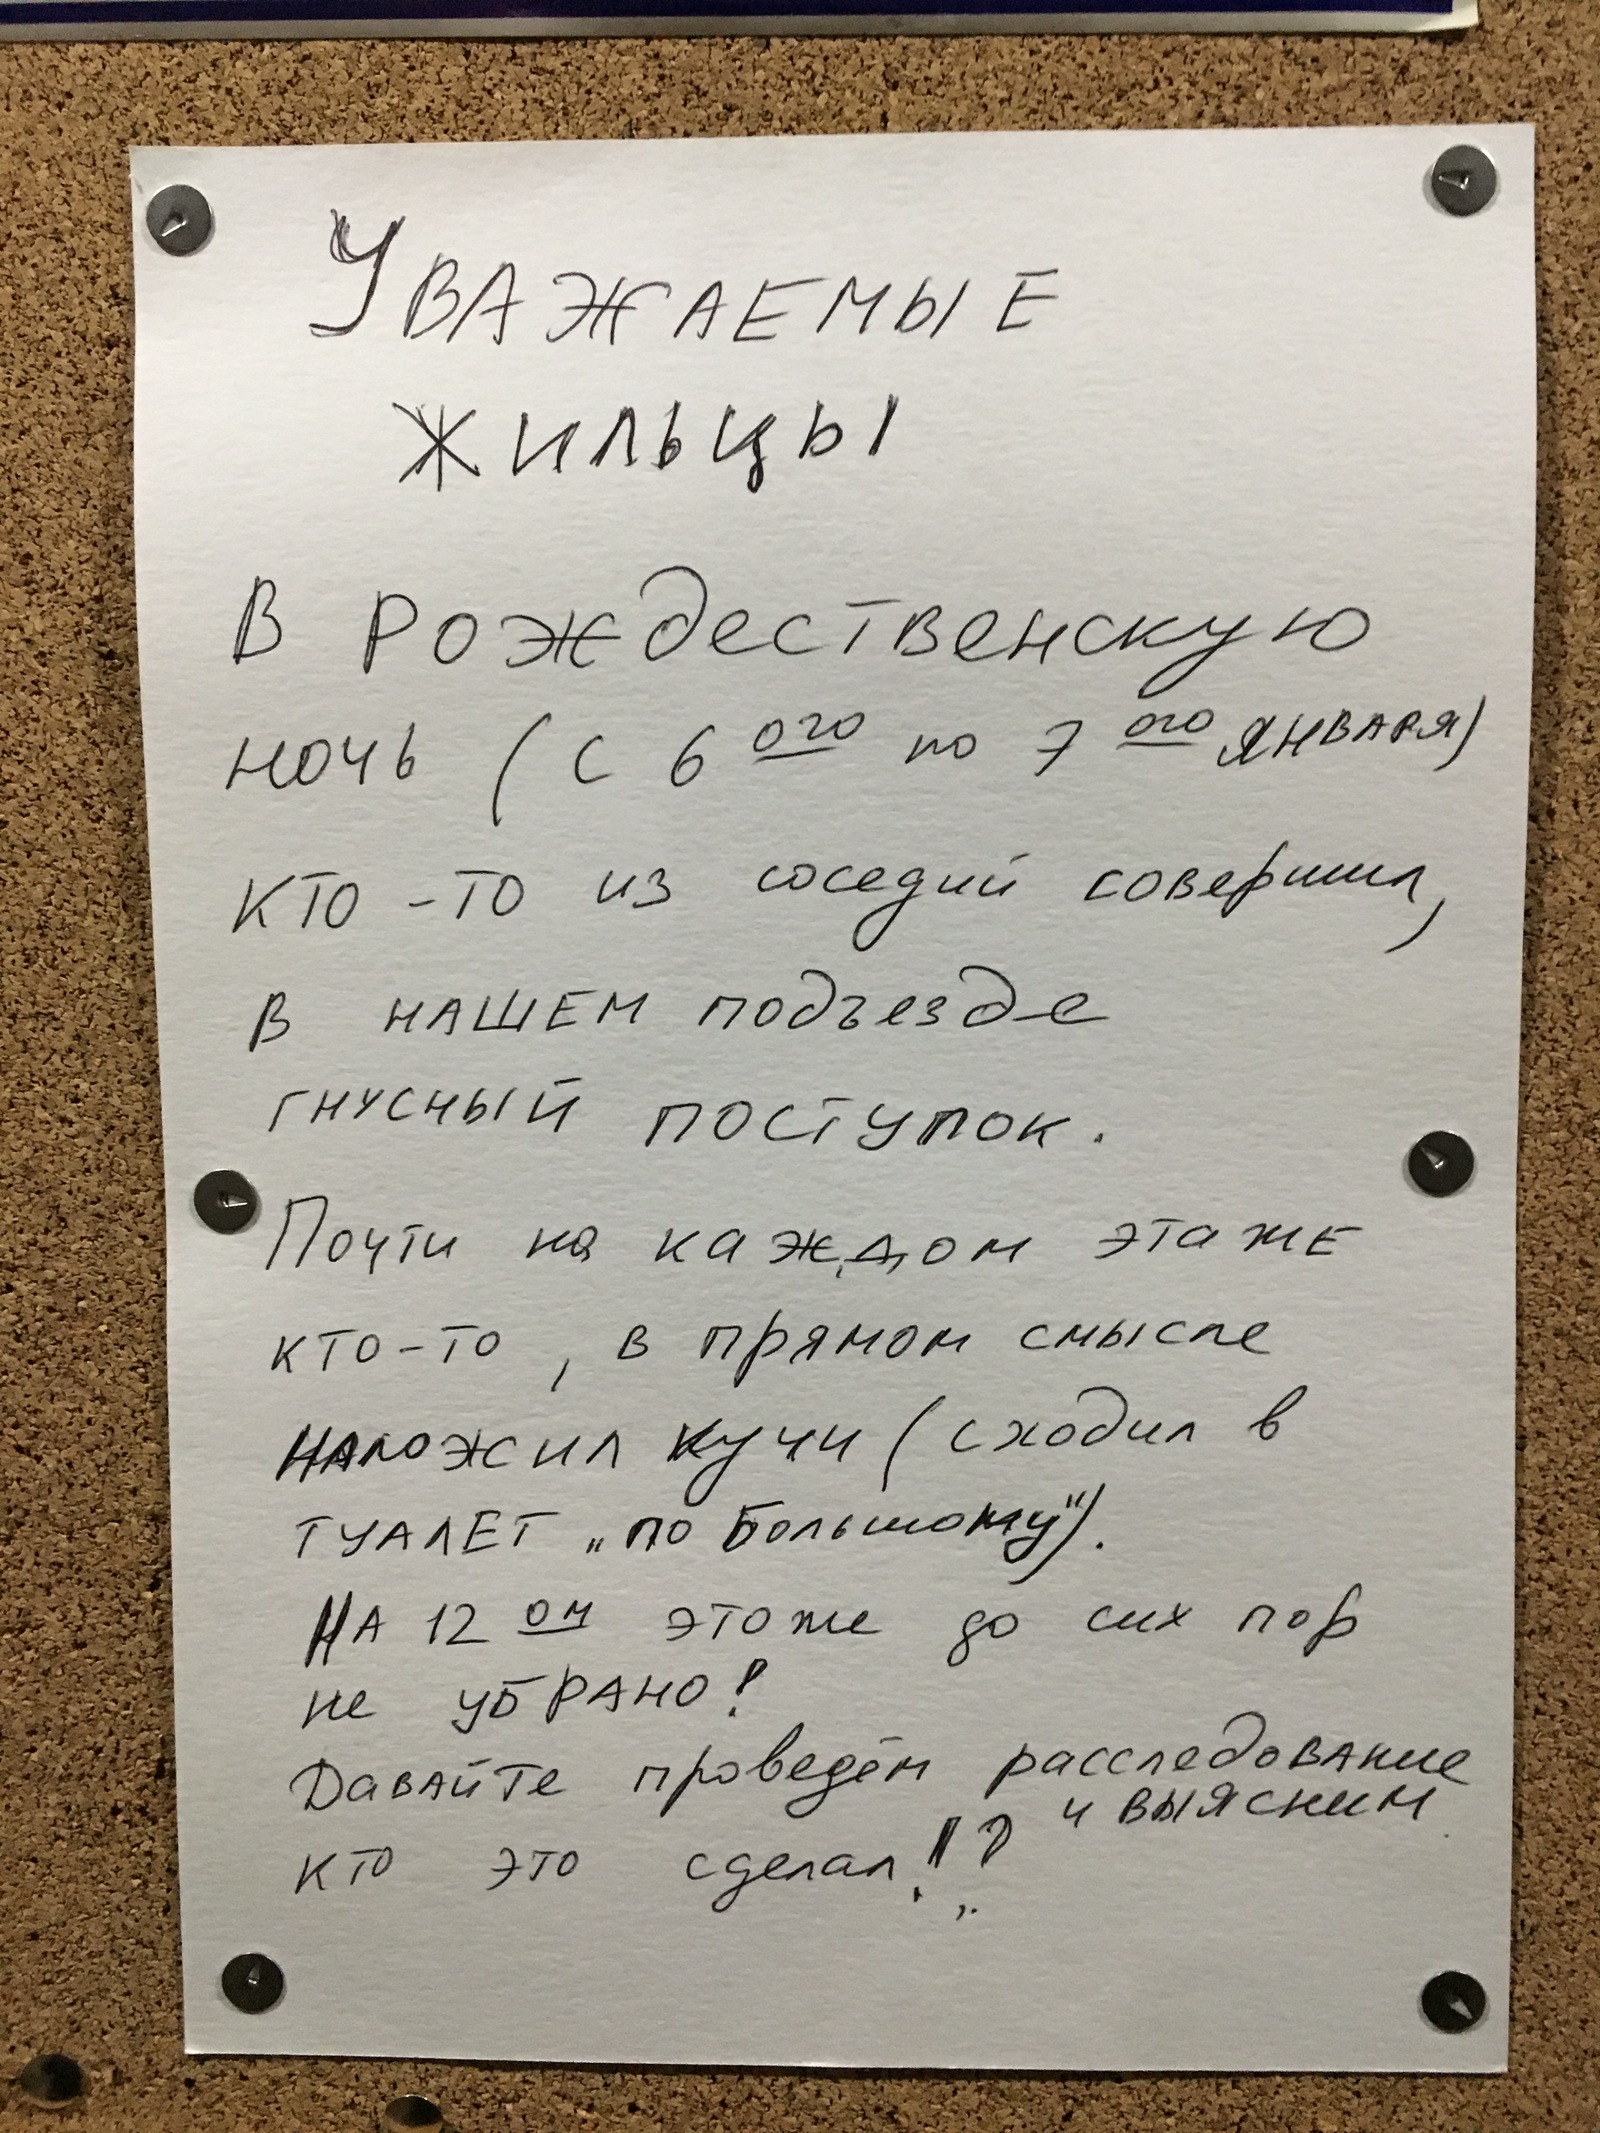 УВАЖАЕМЫЕ
ЖИЛЬЦЫ
В Рождественскую
ночь (с 6 ого по 7 ого ЯНВАРЯ)
кто-то из соседий совершил,
в НАШЕМ подъезде
гнусный поступок.
Почти на каждом этаже
кто-то, в прямом смысле
наложил кучи (сходил в
ТУАЛЕТ „по Большому").
НА 12 ом этоже до сих пор
не УБРАНО!
Давайте проведём расследование
и выясним
кто это сделал!!?